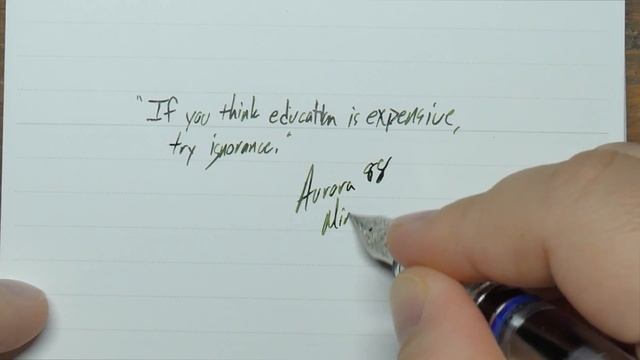 "If you think education is expensive,
try ignorance."
Aurora 88
Min